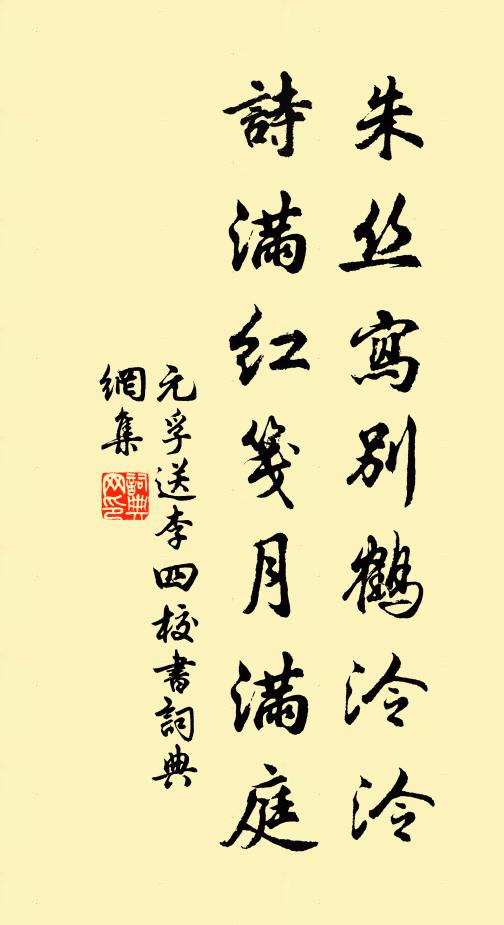 朱丝寫别鶴泠泠
詩滿紅箋月滿庭
元孚送李四校書詞典
網集
詞典網印